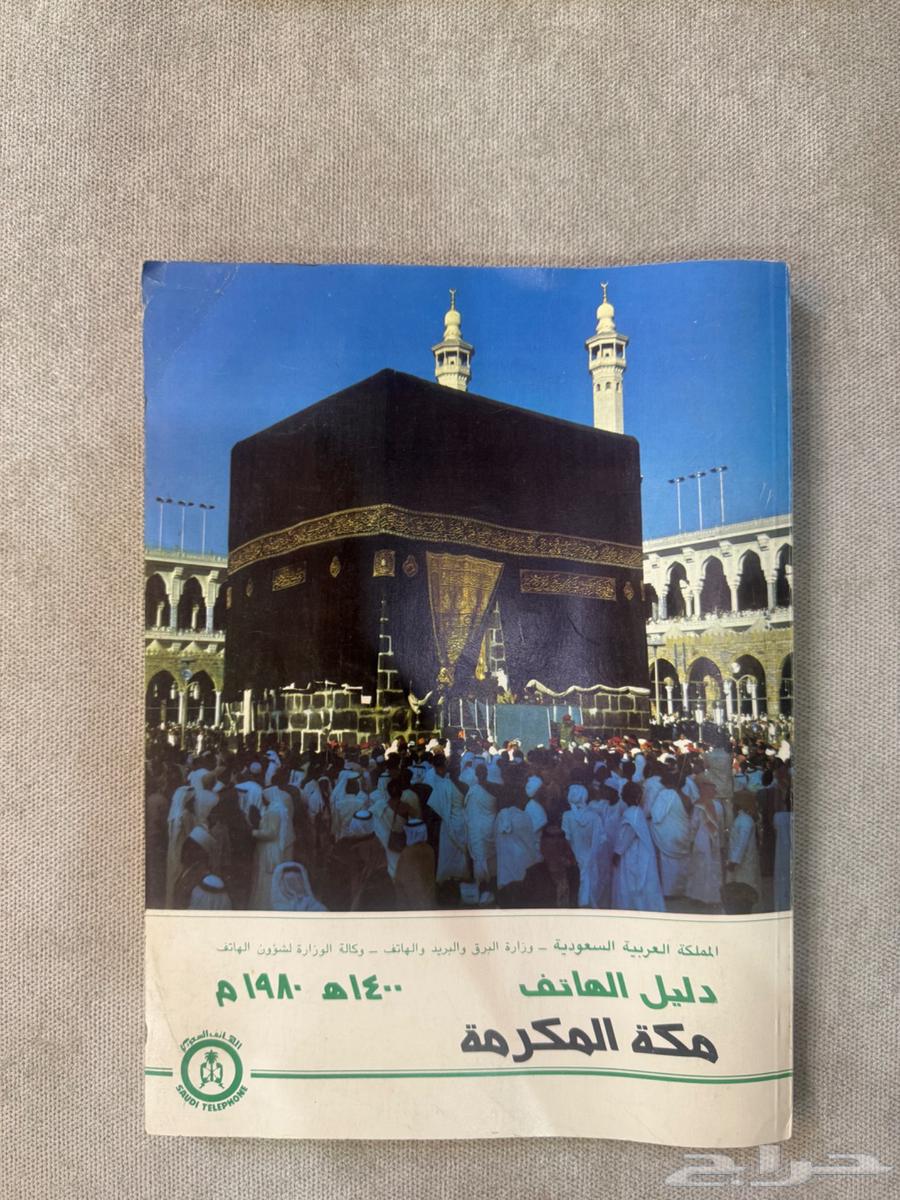 المملكة العربية السعودية – وزارة البرق والبريد والهاتف – وكالة الوزارة لشؤون الهاتف
دليل الهاتف ١٤٠٠هـ ١٩٨٠م
مكة المكرمة
الهاتف السعودي
SAUDI TELEPHONE
حراج